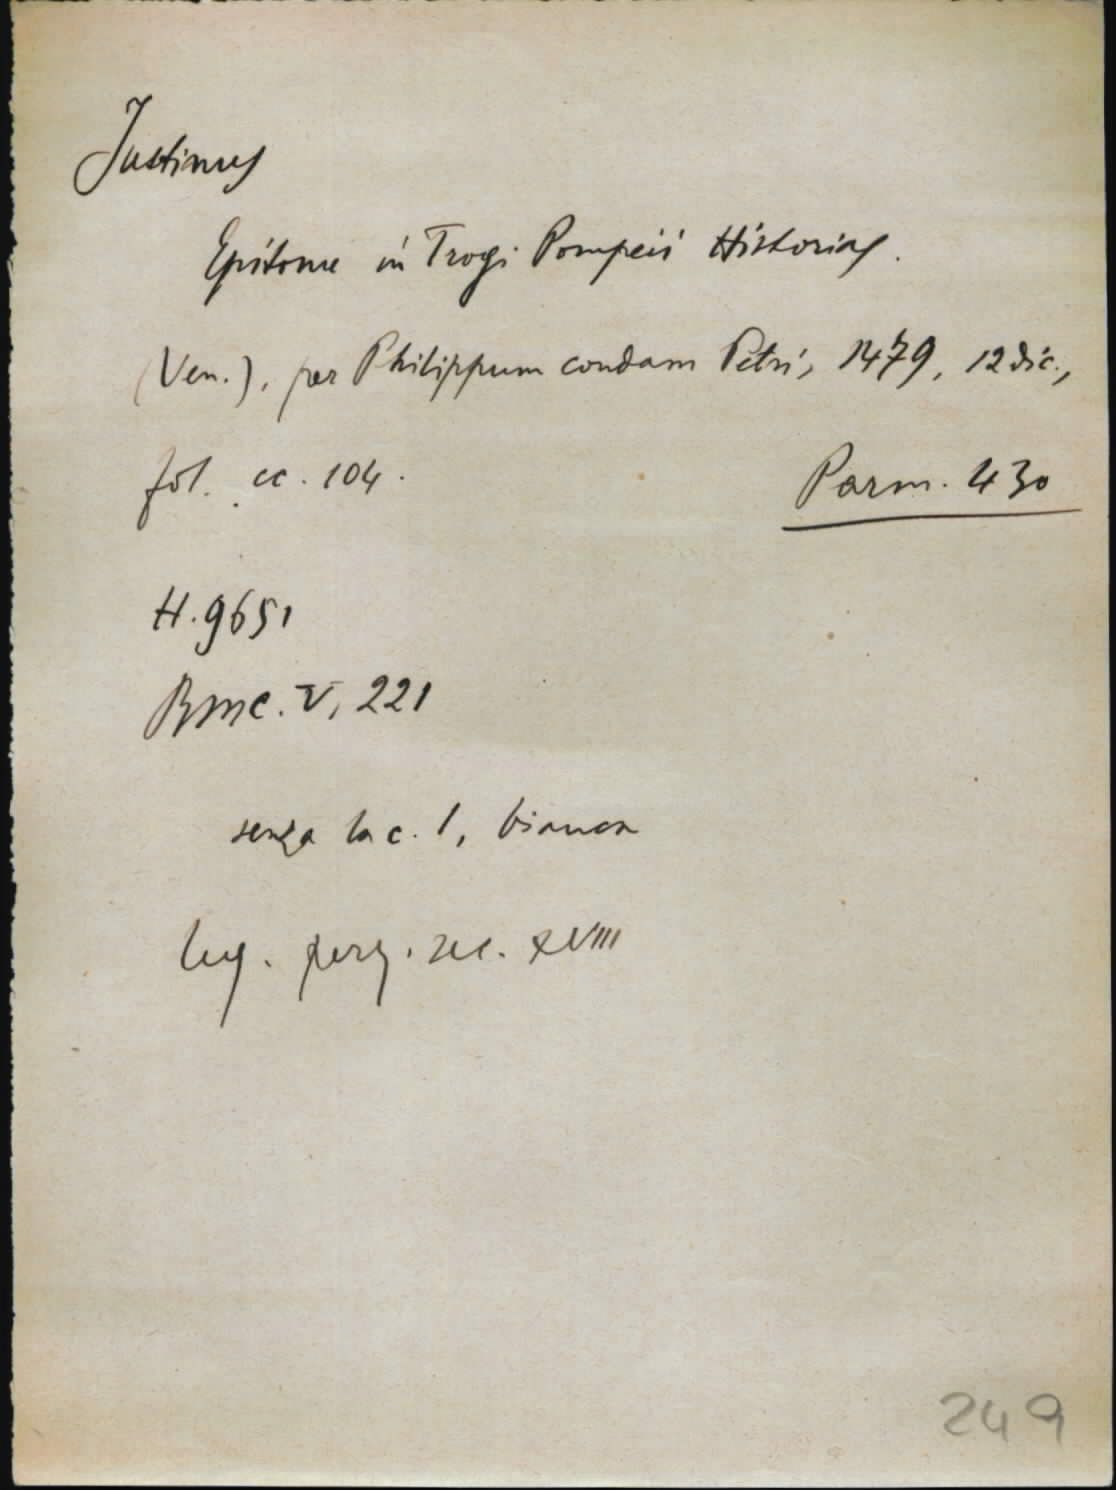 Justinus
Epitome in Trogi Pompeii Historias.
(Ven.), per Philippum condam Petri, 1479, 12 dic.,
fol. cc. 104.
Parm. 430
H. 9651
BMC. V, 221
senza la c. 1, bianca
Leg. perg. sec. XVIII
249